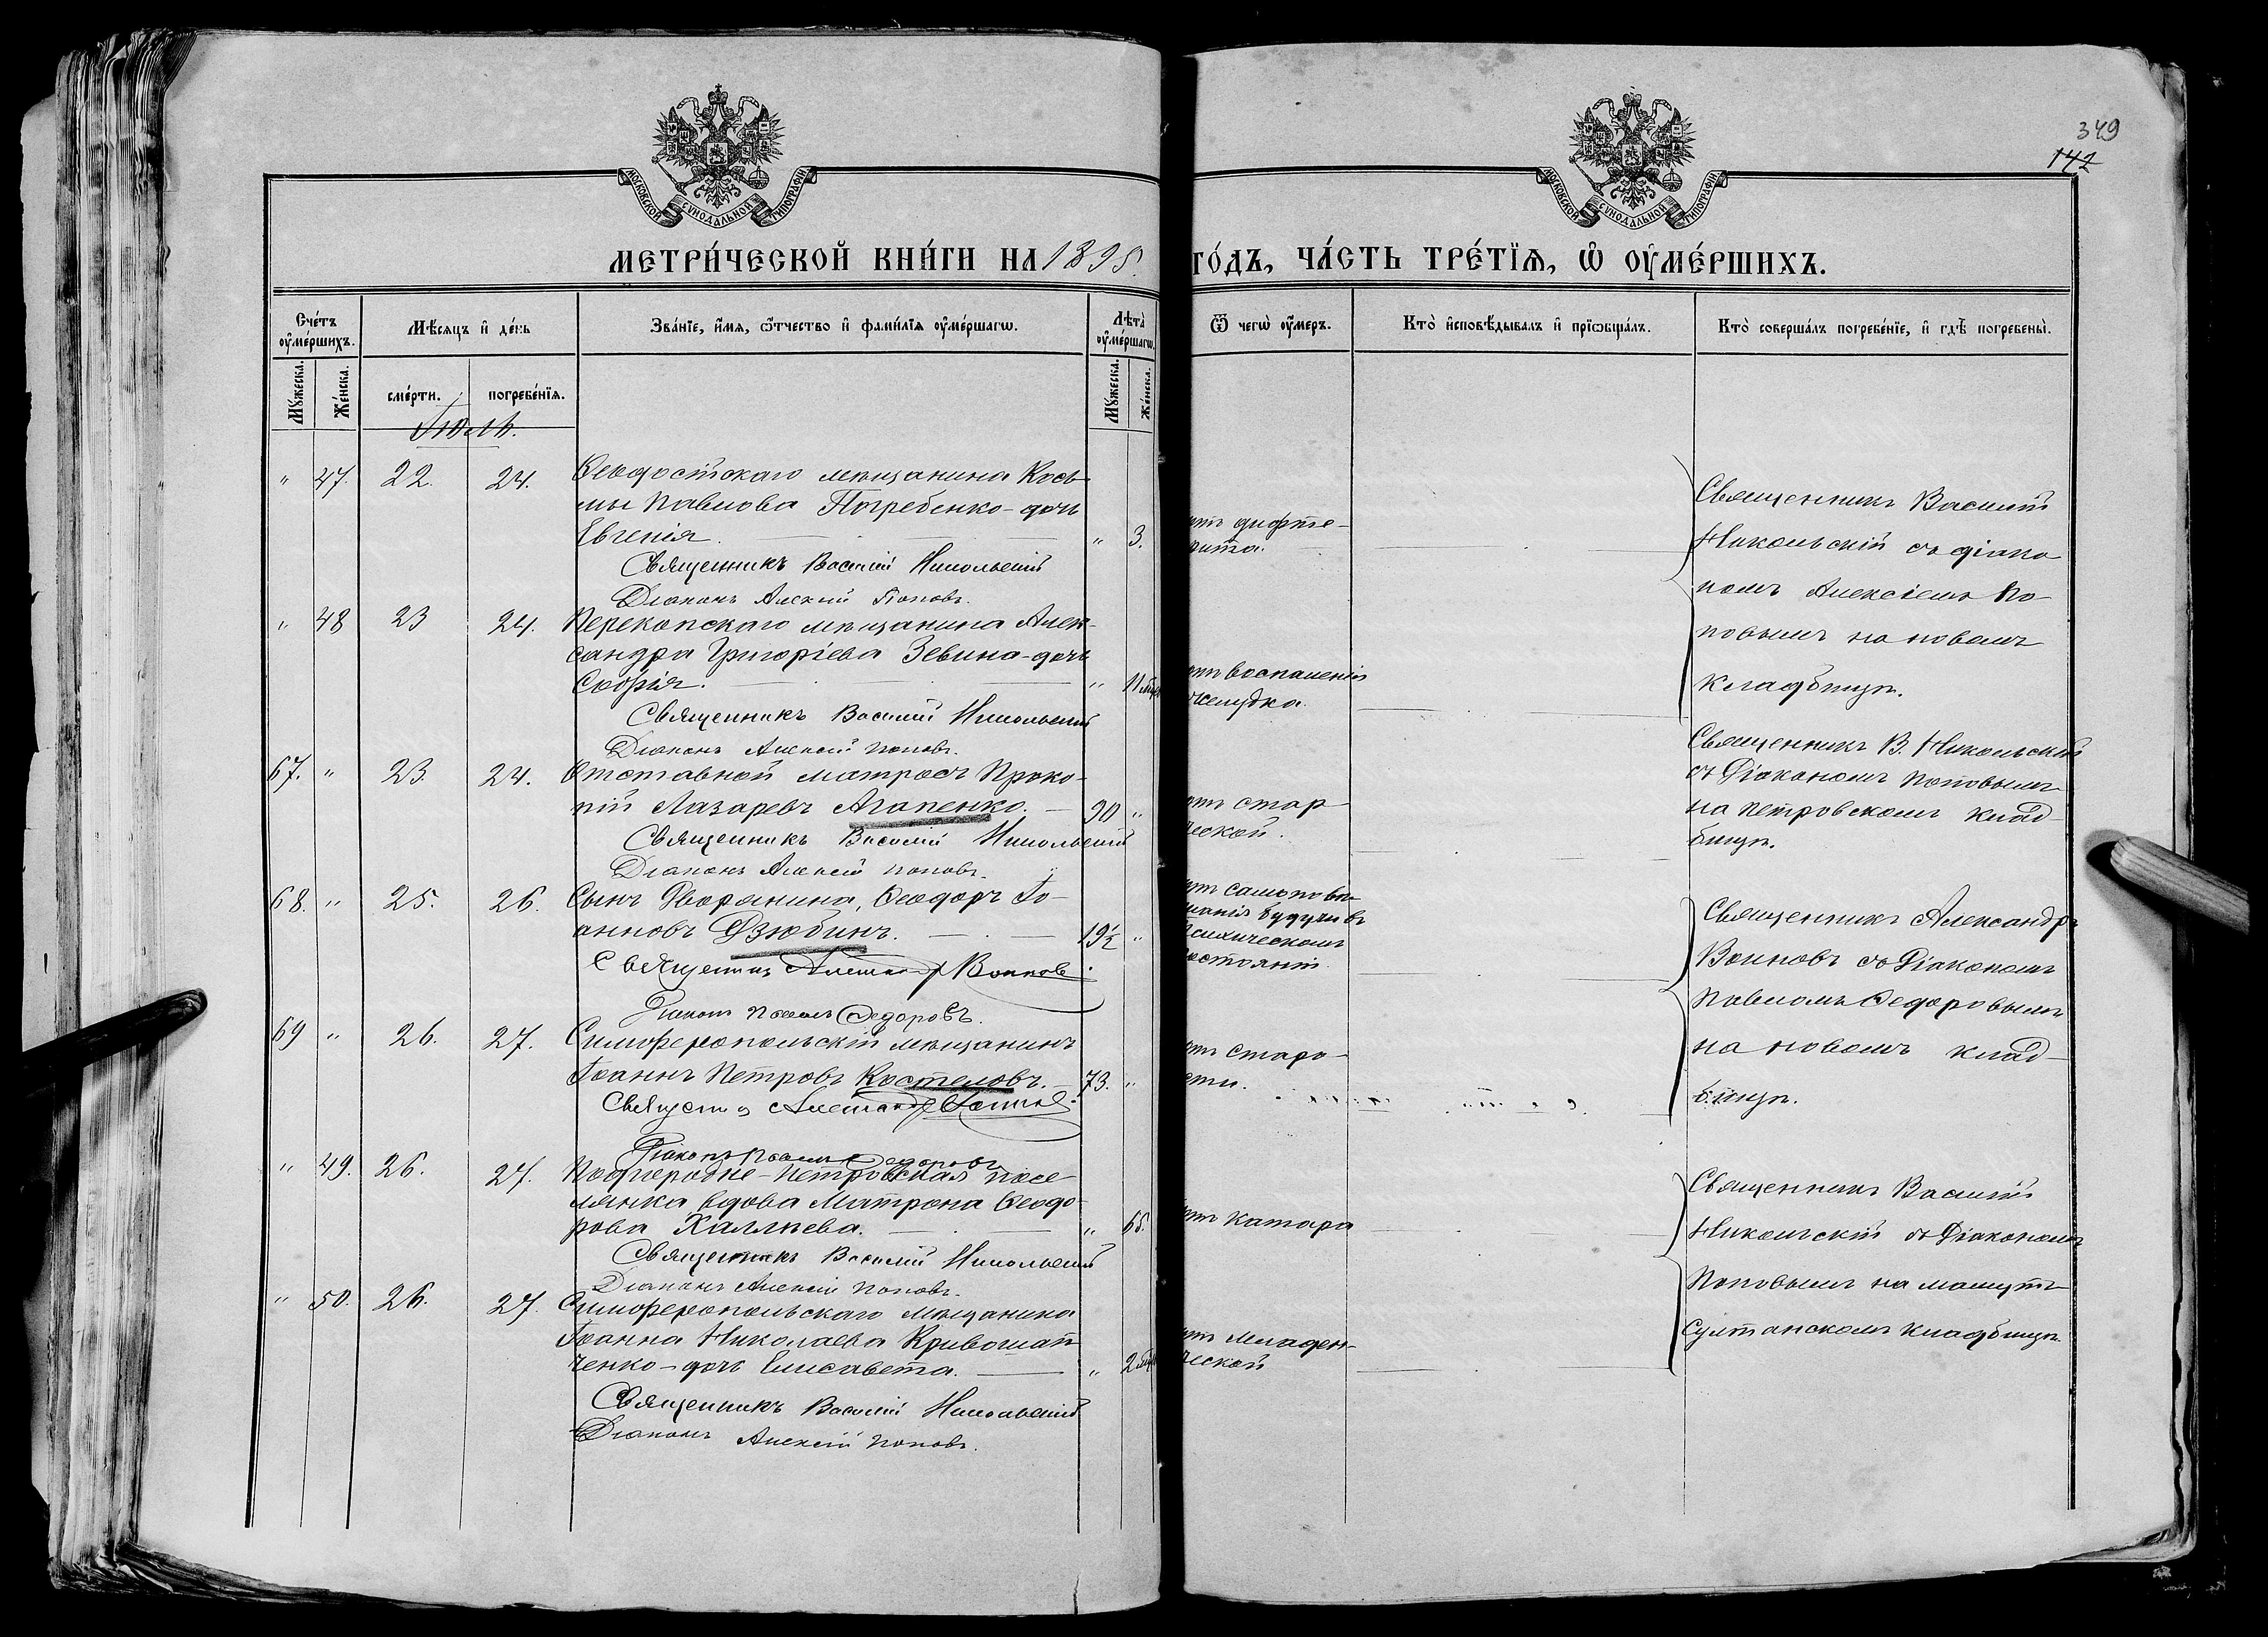 349
142
МОСКОВСКОЙ СѴНОДАЛЬНОЙ ТИПОГРАФІИ
МОСКОВСКОЙ СѴНОДАЛЬНОЙ ТИПОГРАФІИ
МЕТРИ́ЧЕСКОЙ КНИ́ГИ НА 1895.
ГО́ДЪ, ЧА́СТЬ ТРЕ́ТІѦ, Ѡ ОУМЕ́РШИХЪ.
Сче́тъ оуме́ршихъ.
Мѣ́сяцъ и де́нь
Зва́нїе, и́мѧ, ѻ́тчество и фами́лїѧ оуме́ршагѡ.
Лѣта̀ оуме́ршагѡ.
Ѿ чегѡ̀ оу́меръ.
Кто̀ и҆сповѣ́дывалъ и҆ прїѡбща́лъ.
Кто̀ соверша́лъ погребе́нїе, и҆ гдѣ̀ погребены̀.
Мꙋ́жеска.
Же́нска.
сме́рти.
погребе́нїѧ.
Мꙋ́жеска.
Же́нска.
Іюль.
" 47. 22. 24. Ѳеодосійскаго мѣщанина Кось-
мы Павлова Погребенко - дочь
Евгенія. " 3.
Священникъ Василій Никольскій
Діаконъ Алексій Поповъ.
отъ дифте-
рита.
Священникъ Василій
Никольскій съ діако
номъ Алексіемъ По-
повымъ на новомъ
кладбищѣ.
" 48 23 24. Перекопскаго мѣщанина Алек-
сандра Григоріева Зевина - дочь
Софія. " 11 мѣс
Священникъ Василій Никольскій
Діаконъ Алексій Поповъ.
отъ воспаленія
желудка.
67. " 23. 24. Отставной матросъ Проко-
пій Лазаревъ Агапенко. 90 "
Священникъ Василій Никольскій
Діаконъ Алексій Поповъ.
отъ стар
ческой.
Священникъ В. Никольскій
съ Діакономъ Поповымъ
на Петровскомъ клад-
бищѣ.
68. " 25. 26. Сынъ Дворянина, Ѳеодоръ Іо-
анновъ Дзюбинъ. 19½ "
Священникъ Александръ Воиновъ
Діаконъ Павелъ Ѳедоровъ.
отъ самоповѣ-
шанія будучи въ
психическомъ
состояніи.
Священникъ Александръ
Воиновъ съ Діакономъ
Павломъ Ѳедоровымъ
на новомъ клад-
бищѣ.
69 " 26. 27. Симферопольскій мѣщанинъ
Іоаннъ Петровъ Костеловъ. 73. "
Священникъ Александръ Воиновъ
Діаконъ Павелъ Ѳедоровъ
отъ старо-
сти.
" 49. 26. 27. Подгородне-Петровская посе-
лянка вдова Матрона Ѳеодо-
рова Халлѣева. " 65.
Священникъ Василій Никольскій
Діаконъ Алексій Поповъ.
отъ катара
Священникъ Василій
Никольскій съ Діакономъ
Поповымъ на
Султанскомъ кладбищѣ.
" 50. 26. 27. Симферопольскаго мѣщанина
Іоанна Николаева Кривошап
ченко - дочь Елисавета. " 2 мѣс
Священникъ Василій Никольскій
Діаконъ Алексій Поповъ.
отъ младен-
ческой